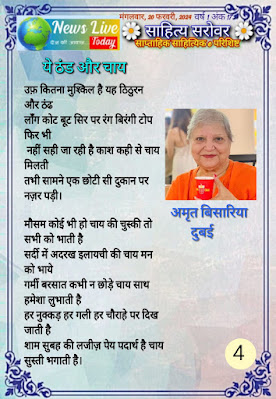 News Live
Today
मंगलवार, 20 फरवरी, 2024 वर्ष 1 अंक
साहित्य सरोवर
साप्ताहिक साहित्यिक ई परिशिष्ट
ये ठंड और चाय
उफ़ कितना मुश्किल है यह ठिठुरन
और ठंढ
लौंग कोट बूट सिर पर रंग बिरंगी टोप
फिर भी
नहीं सही जा रही है काश कही से चाय
मिलती
तभी सामने एक छोटी सी दुकान पर
नज़र पड़ी।
मौसम कोई भी हो चाय की चुस्की तो
सभी को भाती है
सर्दी में अदरख इलायची की चाय मन
को भाये
गर्मी बरसात कभी न छोड़े चाय साथ
हमेशा लुभाती है
हर नुक्कड़ हर गली हर चौराहे पर दिख
जाती है
शाम सुबह की लजीज़ पेय पदार्थ है चाय
सुस्ती भगाती है।
अमृत बिसारिया
दुबई
4